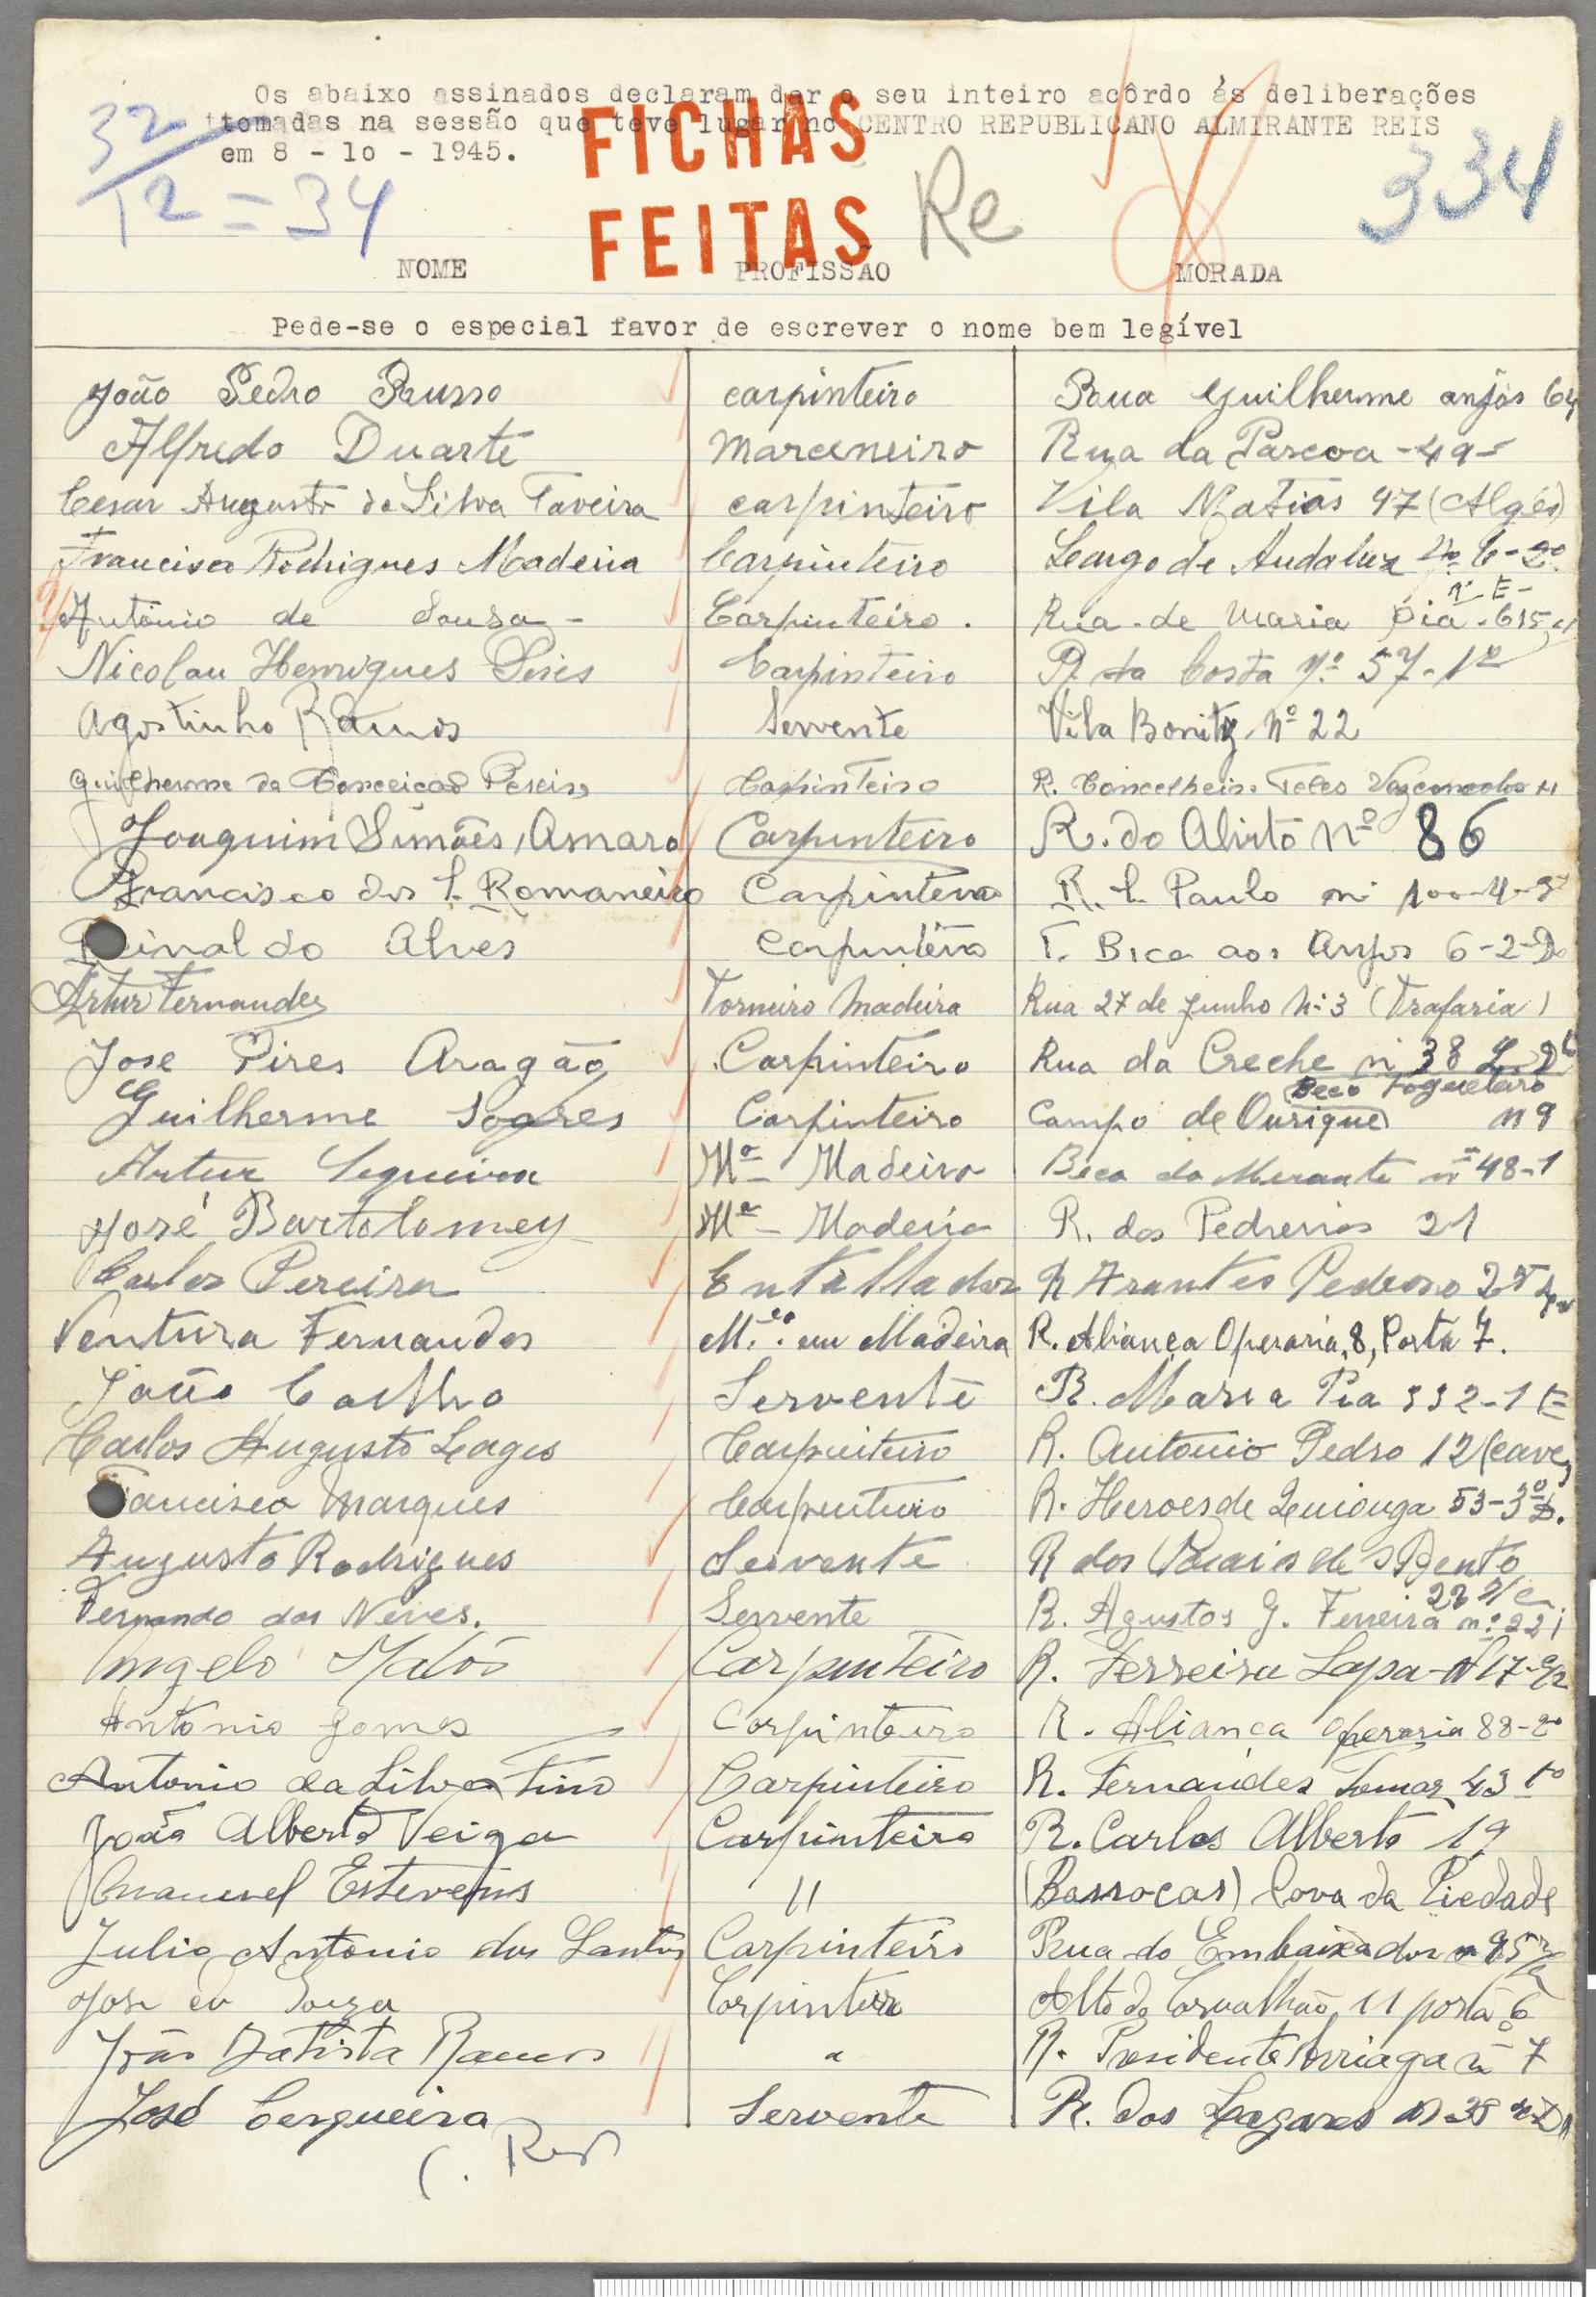 Os abaixo assinados declaram dar o seu inteiro acôrdo ás deliberações
tomadas na sessão que teve lugar no CENTRO REPUBLICANO ALMIRANTE REIS
em 8 - 10 - 1945.
32
12 = 34
FICHAS
FEITAS
Re
334
NOME PROFISSÃO MORADA
Pede-se o especial favor de escrever o nome bem legível
João Pedro Russo carpinteiro Rua Guilherme anjos 64
Alfredo Duarte Marceneiro Rua da Pascoa - 49 -
Cesar Augusto da Silva Taveira carpinteiro Vila Matias 47 (Algés)
Francisco Rodrigues Madeira Carpinteiro Largo de Andaluz
António de Sousa - Carpinteiro . Rua de Maria Pia - 615
Nicolau Henriques Pires Carpinteiro R. da Costa Nº 57-1º
Agostinho Ramos Servente Vila Bonitz Nº 22
Guilherme da Conceição Pereira Carpinteiro R. Concelheiro Teles Vasconcelos
Joaquim Simões Amaro Carpinteiro R. do Alvito nº 86
Francisco dos S. Romaneiro Carpinteiro R. S. Paulo nº 100-4-
inaldo Alves Carpinteiro T. Bica aos Anjos 6-2-
Artur Fernandes Torneiro Madeira Rua 27 de Junho Nº 3 (Trafaria)
Jose Pires Aragão Carpinteiro Rua da Creche nº 38
Beco Fogueteiro
Guilherme Soares Carpinteiro Campo de Ourique n 9
Artur Sequeira Mº Madeira Beco do nº 48-1
José Bartolomey Mº Madeira R. dos Pedreiros 21
Carlos Pereira Entalhador R Arantes Pedroso 25
Ventura Fernandes M.co em Madeira R. Aliança Operaria, 8, Porta 7.
João Coelho Servente R. Maria Pia 332-1 E
Carlos Augusto Lages Carpinteiro R. António Pedro 12 (cave)
ancisco Marques Carpinteiro R. Heroes de Quionga 53-3º D.
Augusto Rodrigues Servente R dos Poiais de S Bento
22 r/c
Fernando das Neves. Servente R. Agustos G. Ferreira nº 22
Angelo Matos Carpinteiro R. Ferreira Lapa - Nº 17-
António Gomes Carpinteiro R. Aliança Operaria 88-2º
Antonio da Silva Tino Carpinteiro R. Fernandes Tomaz 43 1º
João Alberto Veiga Carpinteiro R. Carlos Alberto 19
Manuel Esteves " (Barrocas) Cova da Piedade
Julio Antonio dos Santos Carpinteiro Rua do Embaixador 95
José de Souza Carpinteiro Alto do Carvalhão, 11 porta 6
João Batista Ramos " R. Presidente Arriaga nº 7
José Cerqueira Servente R. dos Lagares